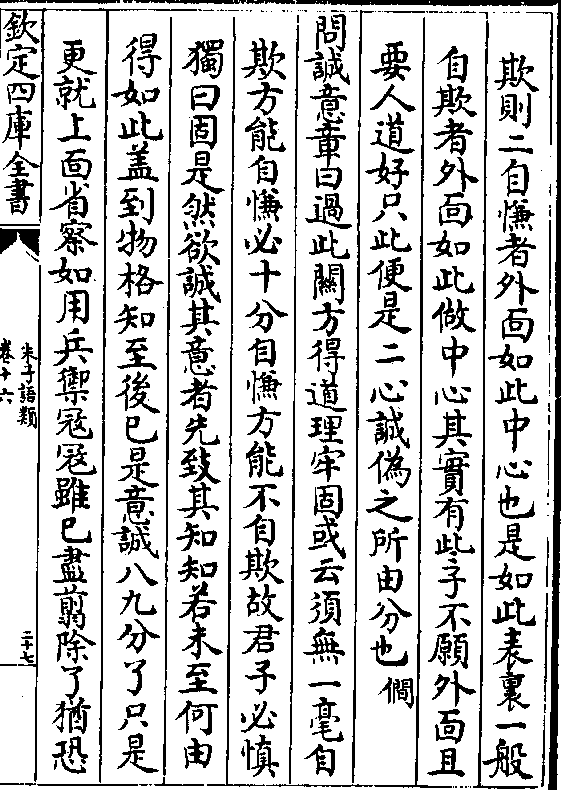 欺則二自慊者外面如此中心也是如此表裏一般
自欺者外面如此做中心其實有些子不願外面且
要人道好只此便是二心誠偽之所由分也僩
問誠意章曰過此關方得道理牢固或云須無一毫自
欺方能自慊必十分自慊方能不自欺故君子必慎
獨曰固是然欲誠其意者先致其知知若未至何由
得如此盖到物格知至後已是意誠八九分了只是
更就上面省察如用兵禦寇寇雖已盡翦除了猶恐
欽定四庫全書
朱子語類
卷十六
二十七